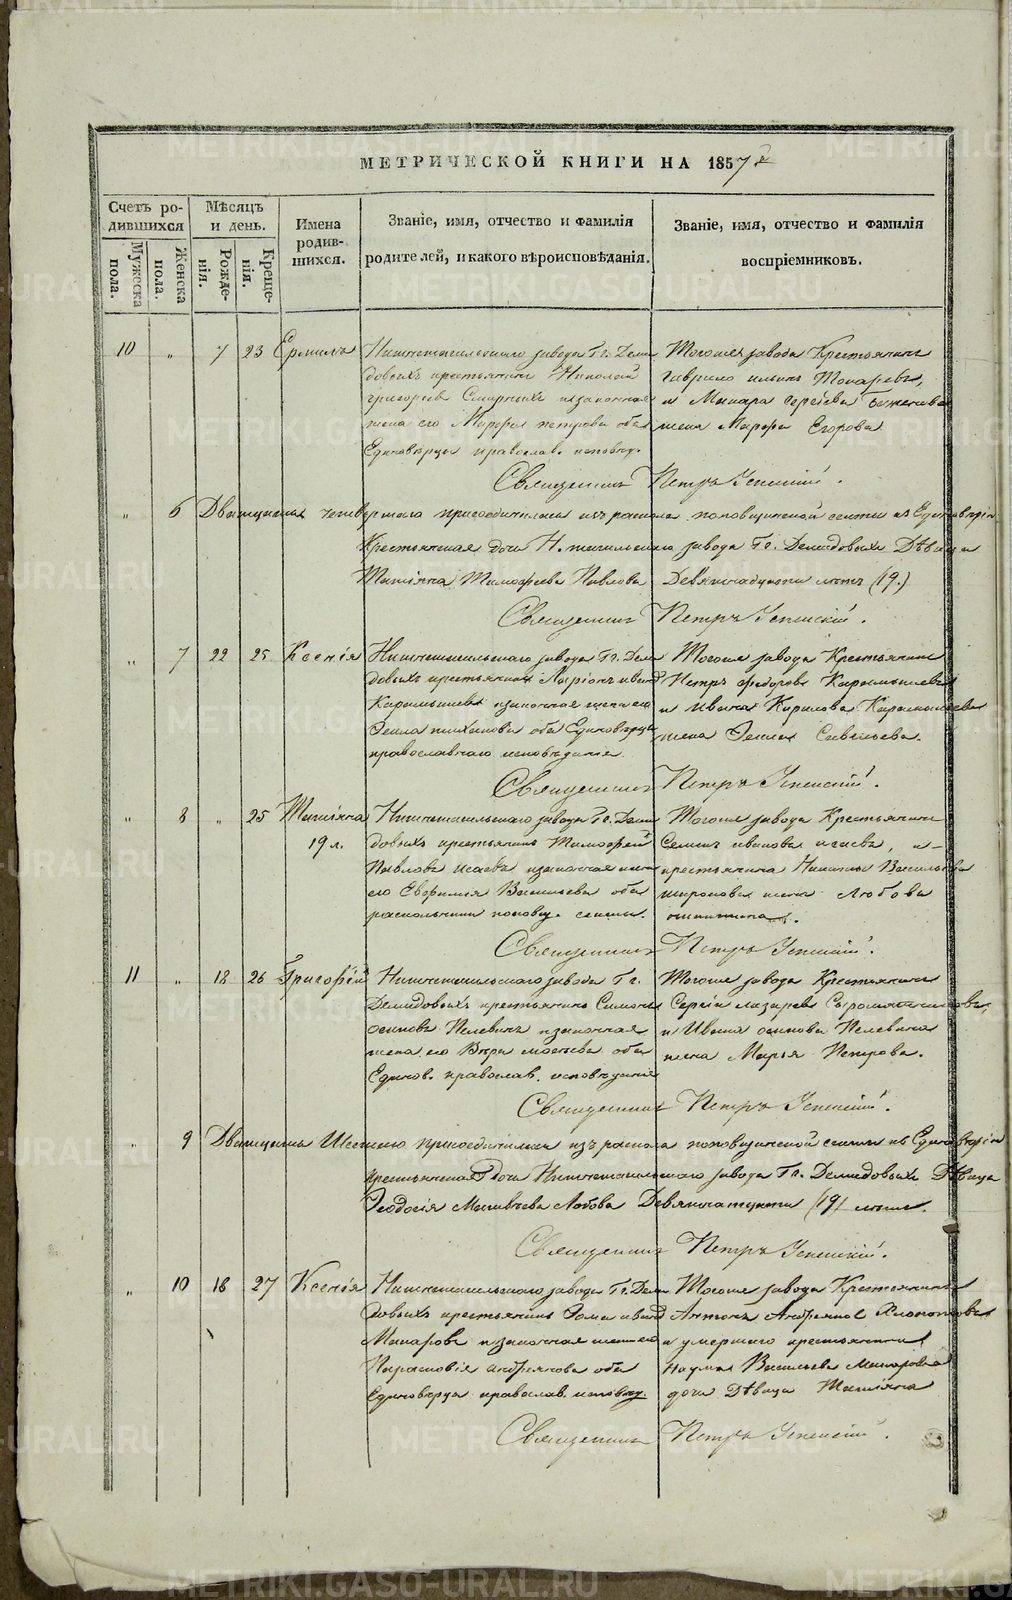 МЕТРИЧЕСКОЙ КНИГИ НА 1857й
Счетъ родившихся
Мѣсяцъ и день.
Имена родившихся.
Званіе, имя, отчество и фамилія родителей, и какого вѣроисповѣданія.
Званіе, имя, отчество и фамилія воспріемниковъ.
Мужеска пола.
Женска пола.
Рожденія.
Крещенія.
10 „ 7 23 Ермилъ
Нижнетагильскаго завода Гг. Деми
довыхъ крестьянинъ Николай
Григорьевъ Смирныхъ и законная
жена его Марфа Петрова оба
Единоверцы православ. исповед.
Тогоже завода Крестьянинъ
Гаврило Ильинъ Токаревъ,
и Макара Сергѣева
жена Марфа Егорова
Священникъ Петръ Успенскій.
„ 6 Двадцать четвертаго присоединилась изъ раскола поповщинской секты къ Единоверію
Крестьянская дочь Н. тагильскаго завода Гг. Демидовыхъ Дѣвица
Татіяна Тимофеева Павлова Девятнадцати лѣтъ (19.)
Священникъ Петръ Успенскій.
„ 7 22 25 Ксенія
Нижнетагильскаго завода Гг. Деми
довыхъ крестьянинъ Ларіонъ Иванъ
Карамышевъ и законная жена его
Текла Тихонова оба Единоверцы
православнаго исповѣданія.
Тогоже завода Крестьянинъ
Петръ Федоровъ Карамышевъ
и Ивана Кирилова Карамышева
жена Текла Савельева.
Священникъ Петръ Успенскій.
„ 8 „ 25 Татіяна
19 л.
Нижнетагильскаго завода Гг. Деми
довыхъ крестьянинъ Тимофей
Павловъ Исаевъ и законная жена
его Евфимія Васильева оба
раскольники поповщ. секты.
Тогоже завода Крестьянинъ
Семенъ Ивановъ Исаевъ, и
крестьянина Никиты Васильева
жена Любова
Священникъ Петръ Успенскій.
11 „ 18 26 Григорій
Нижнетагильскаго завода Гг.
Демидовыхъ крестьянинъ Симонъ
Осиповъ Пелевинъ и законная
жена его Вера Мосеева оба
Единов. православ. исповѣданія
Тогоже завода Крестьянинъ
Сергій Лазаревъ Сыромятниковъ,
и Ивана Осипова Пелевина
жена Марья Петрова.
Священникъ Петръ Успенскій.
„ 9 Двадцать Шестаго присоединилась изъ раскола поповщинской секты къ Единоверію
крестьянская дочь Нижнетагильскаго завода Гг. Демидовыхъ Дѣвица
Феодосія Матвѣева Лобова Девятнадцати (19) лѣтъ.
Священникъ Петръ Успенскій.
„ 10 18 27 Ксенія
Нижнетагильскаго завода Гг. Деми
довыхъ крестьянинъ Фома Иванъ
Макаровъ и законная жена его
Парасковія Андреянова оба
Единоверцы православ. исповед.
Тогоже завода Крестьянинъ
Антонъ Андреяновъ Хлопотовъ
и умершаго крестьянина
Наума Васильева Макарова
дочь Дѣвица Татіяна
Священникъ Петръ Успенскій.
METRIKI.GASO-URAL.RU